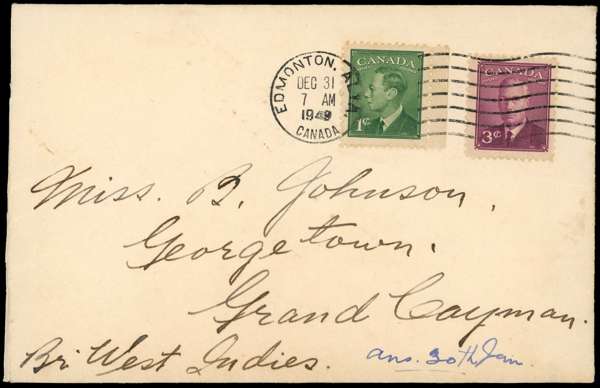 EDMONTON, ALTA.
DEC 31
7 AM
1949
CANADA
CANADA
1¢
CANADA
3¢
Miss. B. Johnson,
Georgetown.
Grand Cayman.
Br. West Indies.
ans. 30th Jan.